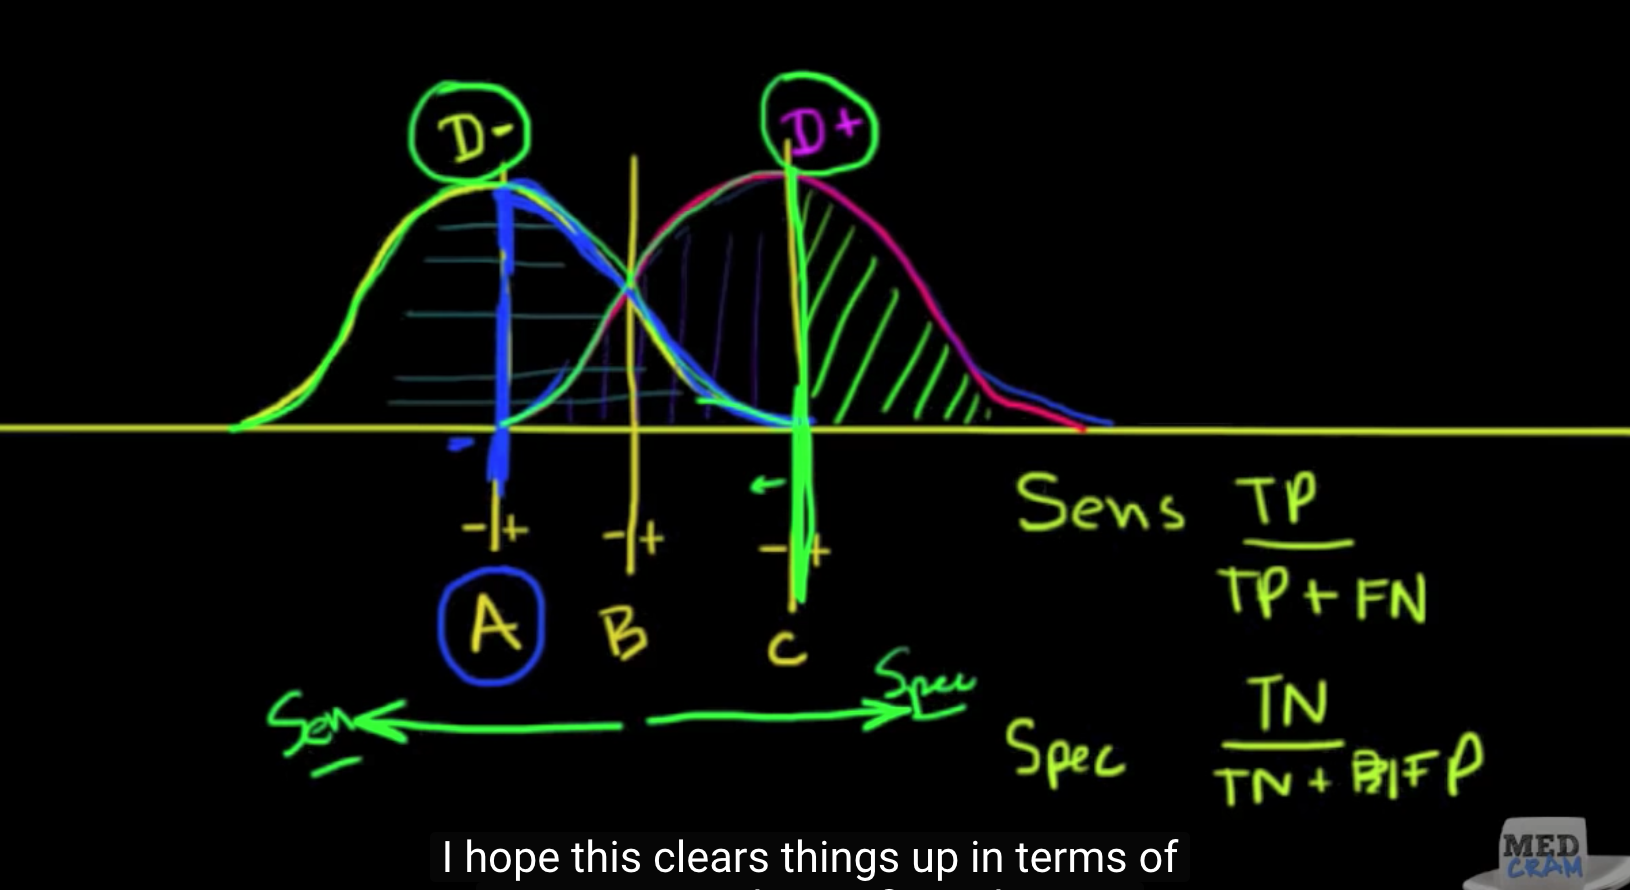 D- D+
-
- + - + - +
A B C
Sens TP
TP + FN
Sen Spec
Spec TN
TN + FP
I hope this clears things up in terms of
MED
CRAM